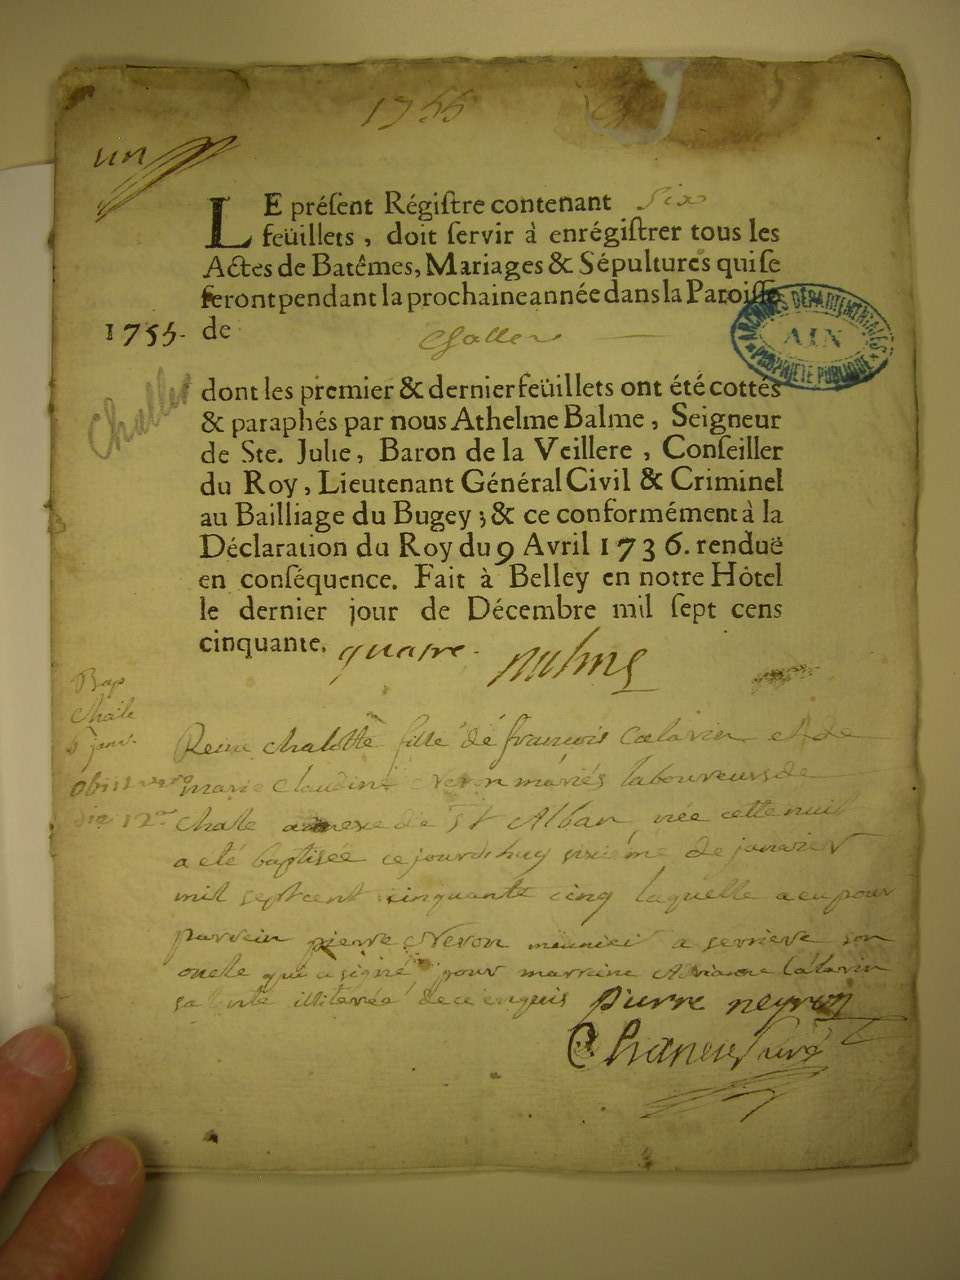 1755
un
LE préſent Régiſtre contenant Six
feüillets, doit ſervir à enrégiſtrer tous les
Actes de Batêmes, Mariages & Sépultures qui ſe
feront pendant la prochaine année dans la Paroiſſe
1755. de Challer
ARCHIVES DÉPARTEMENTALES
AIN
PROPRIÉTÉ PUBLIQUE
Challer
dont les premier & dernier feüillets ont été cottés
& paraphés par nous Athelme Balme, Seigneur
de Ste. Julie, Baron de la Veillere, Conſeiller
du Roy, Lieutenant Général Civil & Criminel
au Bailliage du Bugey; & ce conformément à la
Déclaration du Roy du 9 Avril 1736. renduë
en conſéquence. Fait à Belley en notre Hôtel
le dernier jour de Décembre mil ſept cens
cinquante. quatre.
Bap
Chale
6 janv.
obiit
die 12
Reine chalotte fille de francois Calavin et de
marie Claudine Neron mariés laboureurs de
Chale annexe de St Alban née cette nuit
a été baptisée ce jourdhuy sixiéme de janvier
mil septcent cinquante cinq laquelle a eu pour
parrein pierre Neron meunier a serriere son
oncle qui a signé pour marreine Calavin
sa illiterée de ce enquis pierre neyron
curé